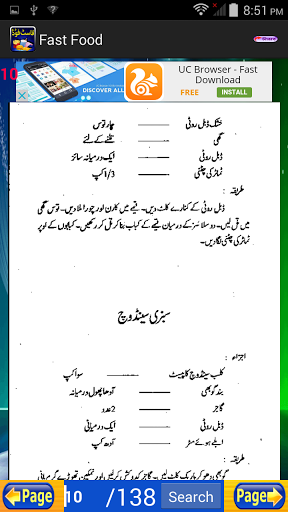 8:51 PM
Fast Food
Share
10
UC Browser - Fast
Download
DISCOVER ALL
FREE INSTALL
خشک ڈبل روٹی ——— چار توس
گھی ——— تلنے کے لئے
ڈبل روٹی ——— ایک درمیانہ سائز
ٹماٹر کی چٹنی ——— 1/3 کپ
طریقہ :
ڈبل روٹی کے کنارے کاٹ دیں۔ قیمے میں کارن اور چورا ملا دیں۔ توس گھی
میں تل لیں۔ دو سلائسز کے درمیان قیمے کے کباب بنا کر تل کر رکھیں۔ کبابوں کے اوپر
ٹماٹر کی چٹنی لگا دیں۔
سبزی سینڈوچ
اجزاء :
کلب سینڈوچ کا پیسٹ ——— سوا کپ
بند گوبھی ——— آدھا پھول درمیانہ
گاجر ——— 2 عدد
ڈبل روٹی ——— ایک درمیانی
ابلے ہوئے مٹر ——— آدھ کپ
طریقہ :
گوبھی دھو کر باریک کاٹ لیں۔ گاجر کدو کش کر لیں اور نمکین تھوڑے
Page 10 /138 Search Page